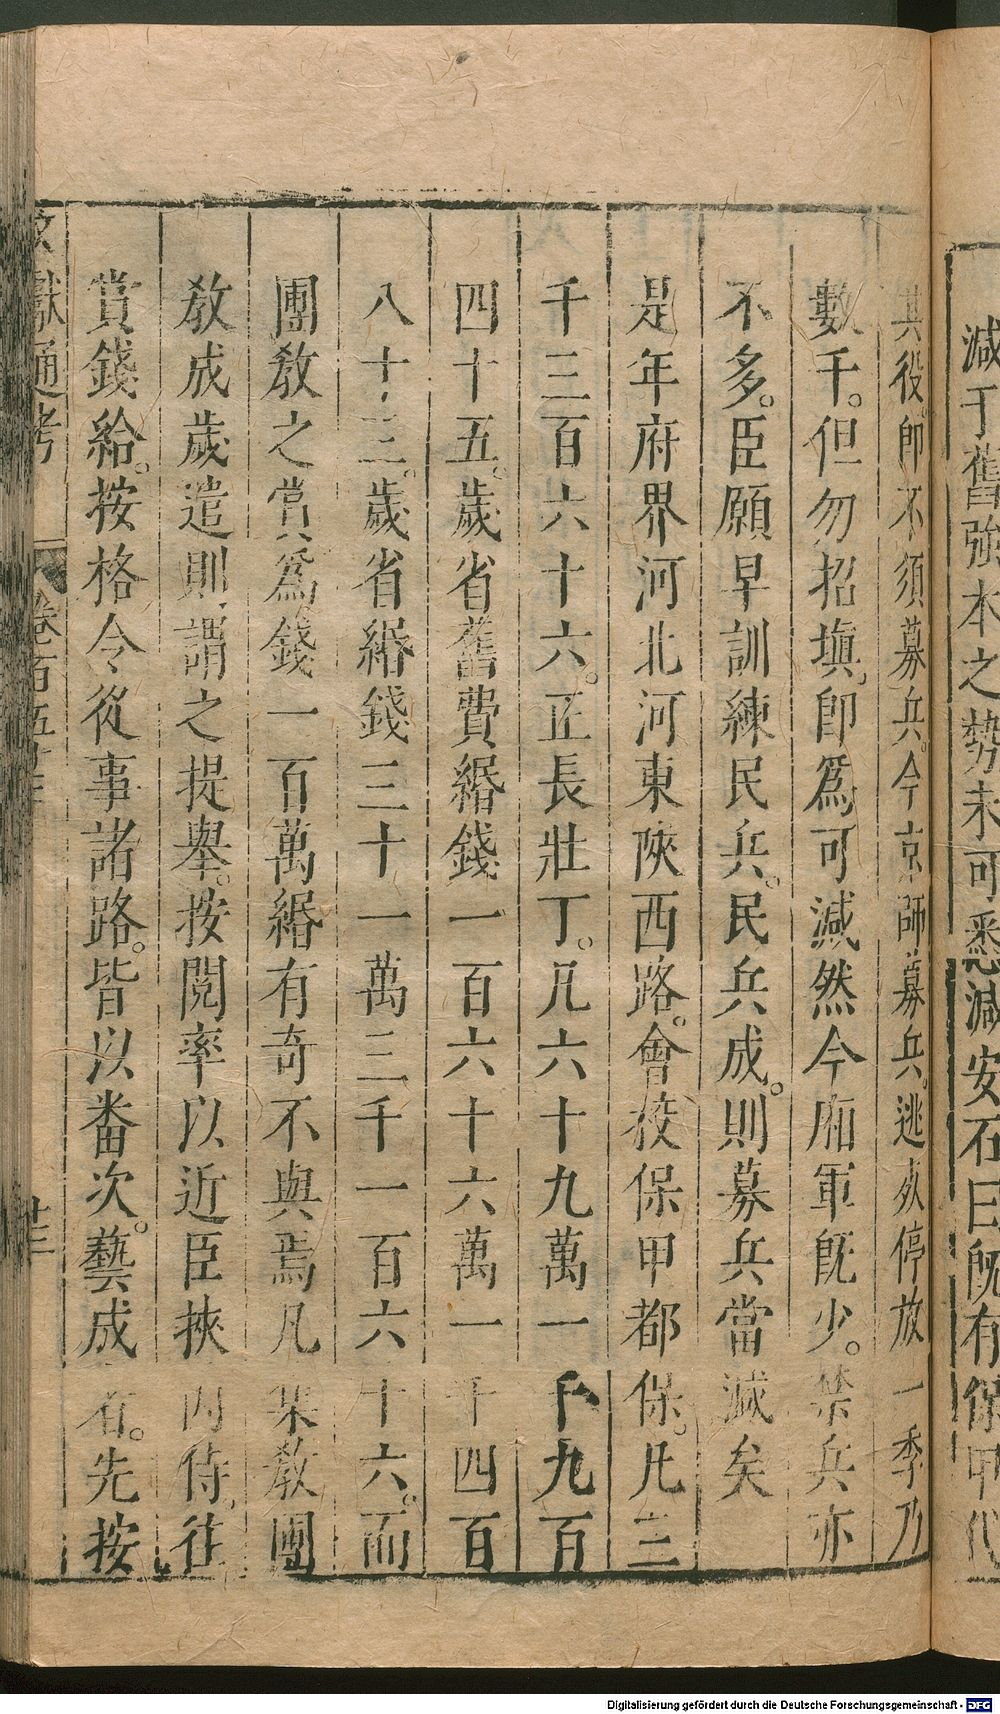 減于舊強本之勢未可悉減安石曰既有保甲代
其役。即不須募兵。今京師募兵。逃死停放一季乃
數千。但勿招填。即爲可減然今廂軍既少。禁兵亦
不多。臣願早訓練民兵。民兵成。則募兵當減矣
是年府界河北河東陝西路。會校保甲都保。凡三
千三百六十六。正長壯丁。凡六十九萬一千九百
四十五。歲省舊費緡錢一百六十六萬一千四百
八十三。歲省緡錢三十一萬三千一百六十六。而
團教之賞爲錢一百萬緡有奇不與焉凡集教團
教成歲遣則謂之提舉。按閱率以近臣挾內侍。往
賞錢給。按格令從事諸路。皆以畨次。藝成者。先按
文獻通考 卷百五十三 廿三
Digitalisierung gefördert durch die Deutsche Forschungsgemeinschaft - DFG